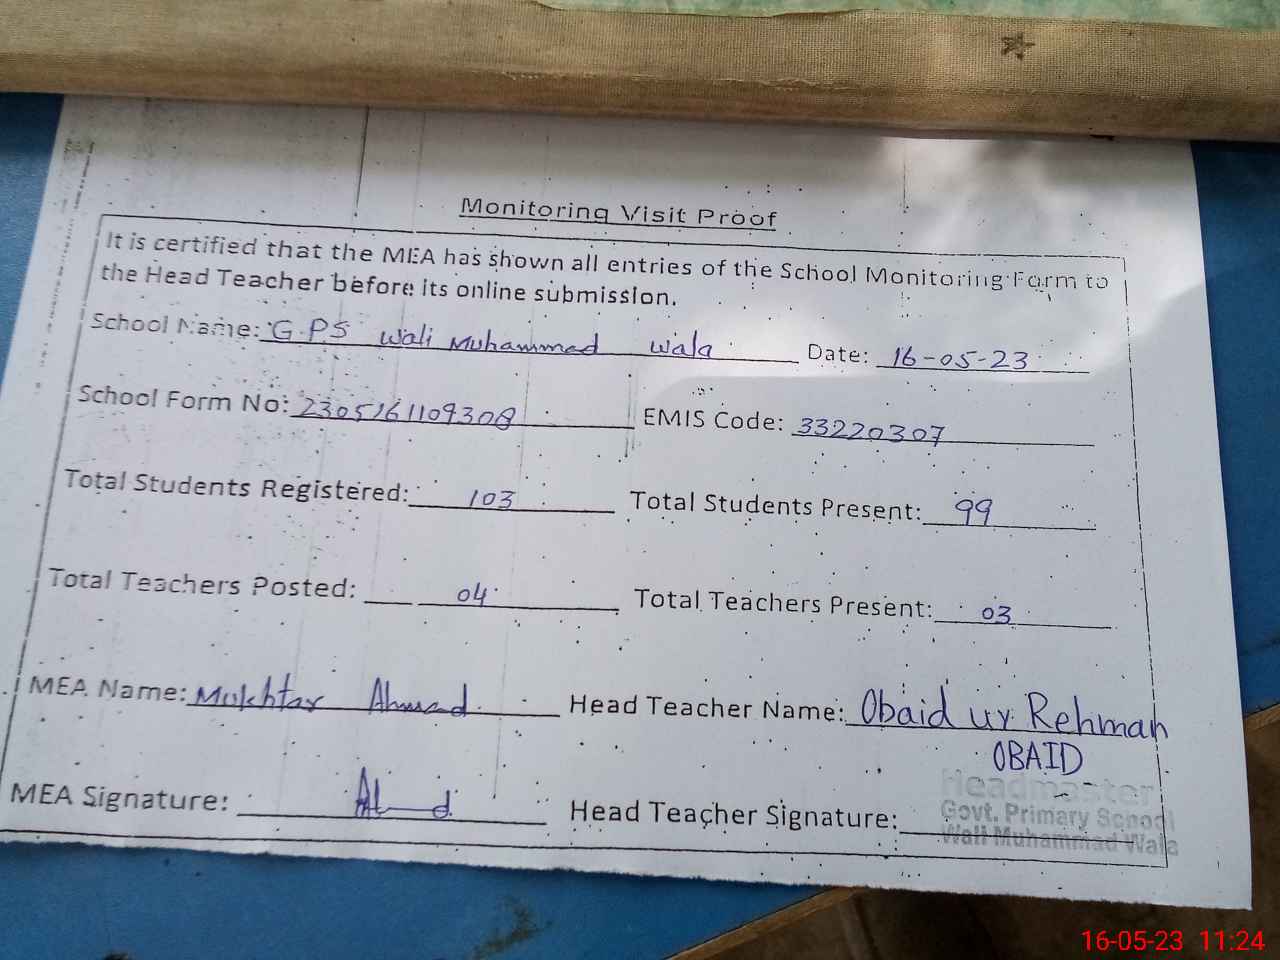 Monitoring Visit Proof
It is certified that the MEA has shown all entries of the School Monitoring Form to
the Head Teacher before its online submission.
School Name: G.P.S Wali Muhammad Wala Date: 16-05-23
School Form No: 2305161109308 EMIS Code: 33220307
Total Students Registered: 103 Total Students Present: 99
Total Teachers Posted: 04 Total Teachers Present: 03
MEA Name: Mukhtar Ahmad Head Teacher Name: Obaid ur Rehman
OBAID
MEA Signature: Head Teacher Signature:
Headmaster
Govt. Primary School
Wali Muhammad Wala
16-05-23 11:24